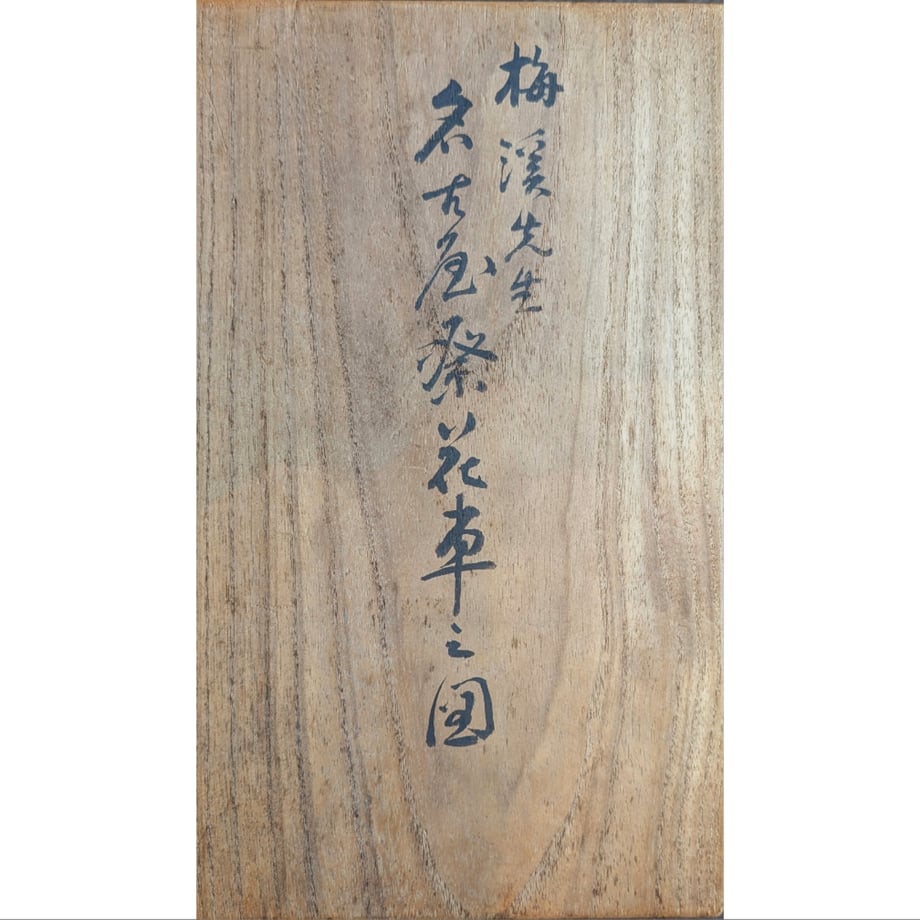 梅溪先生
名古屋祭花車之圖